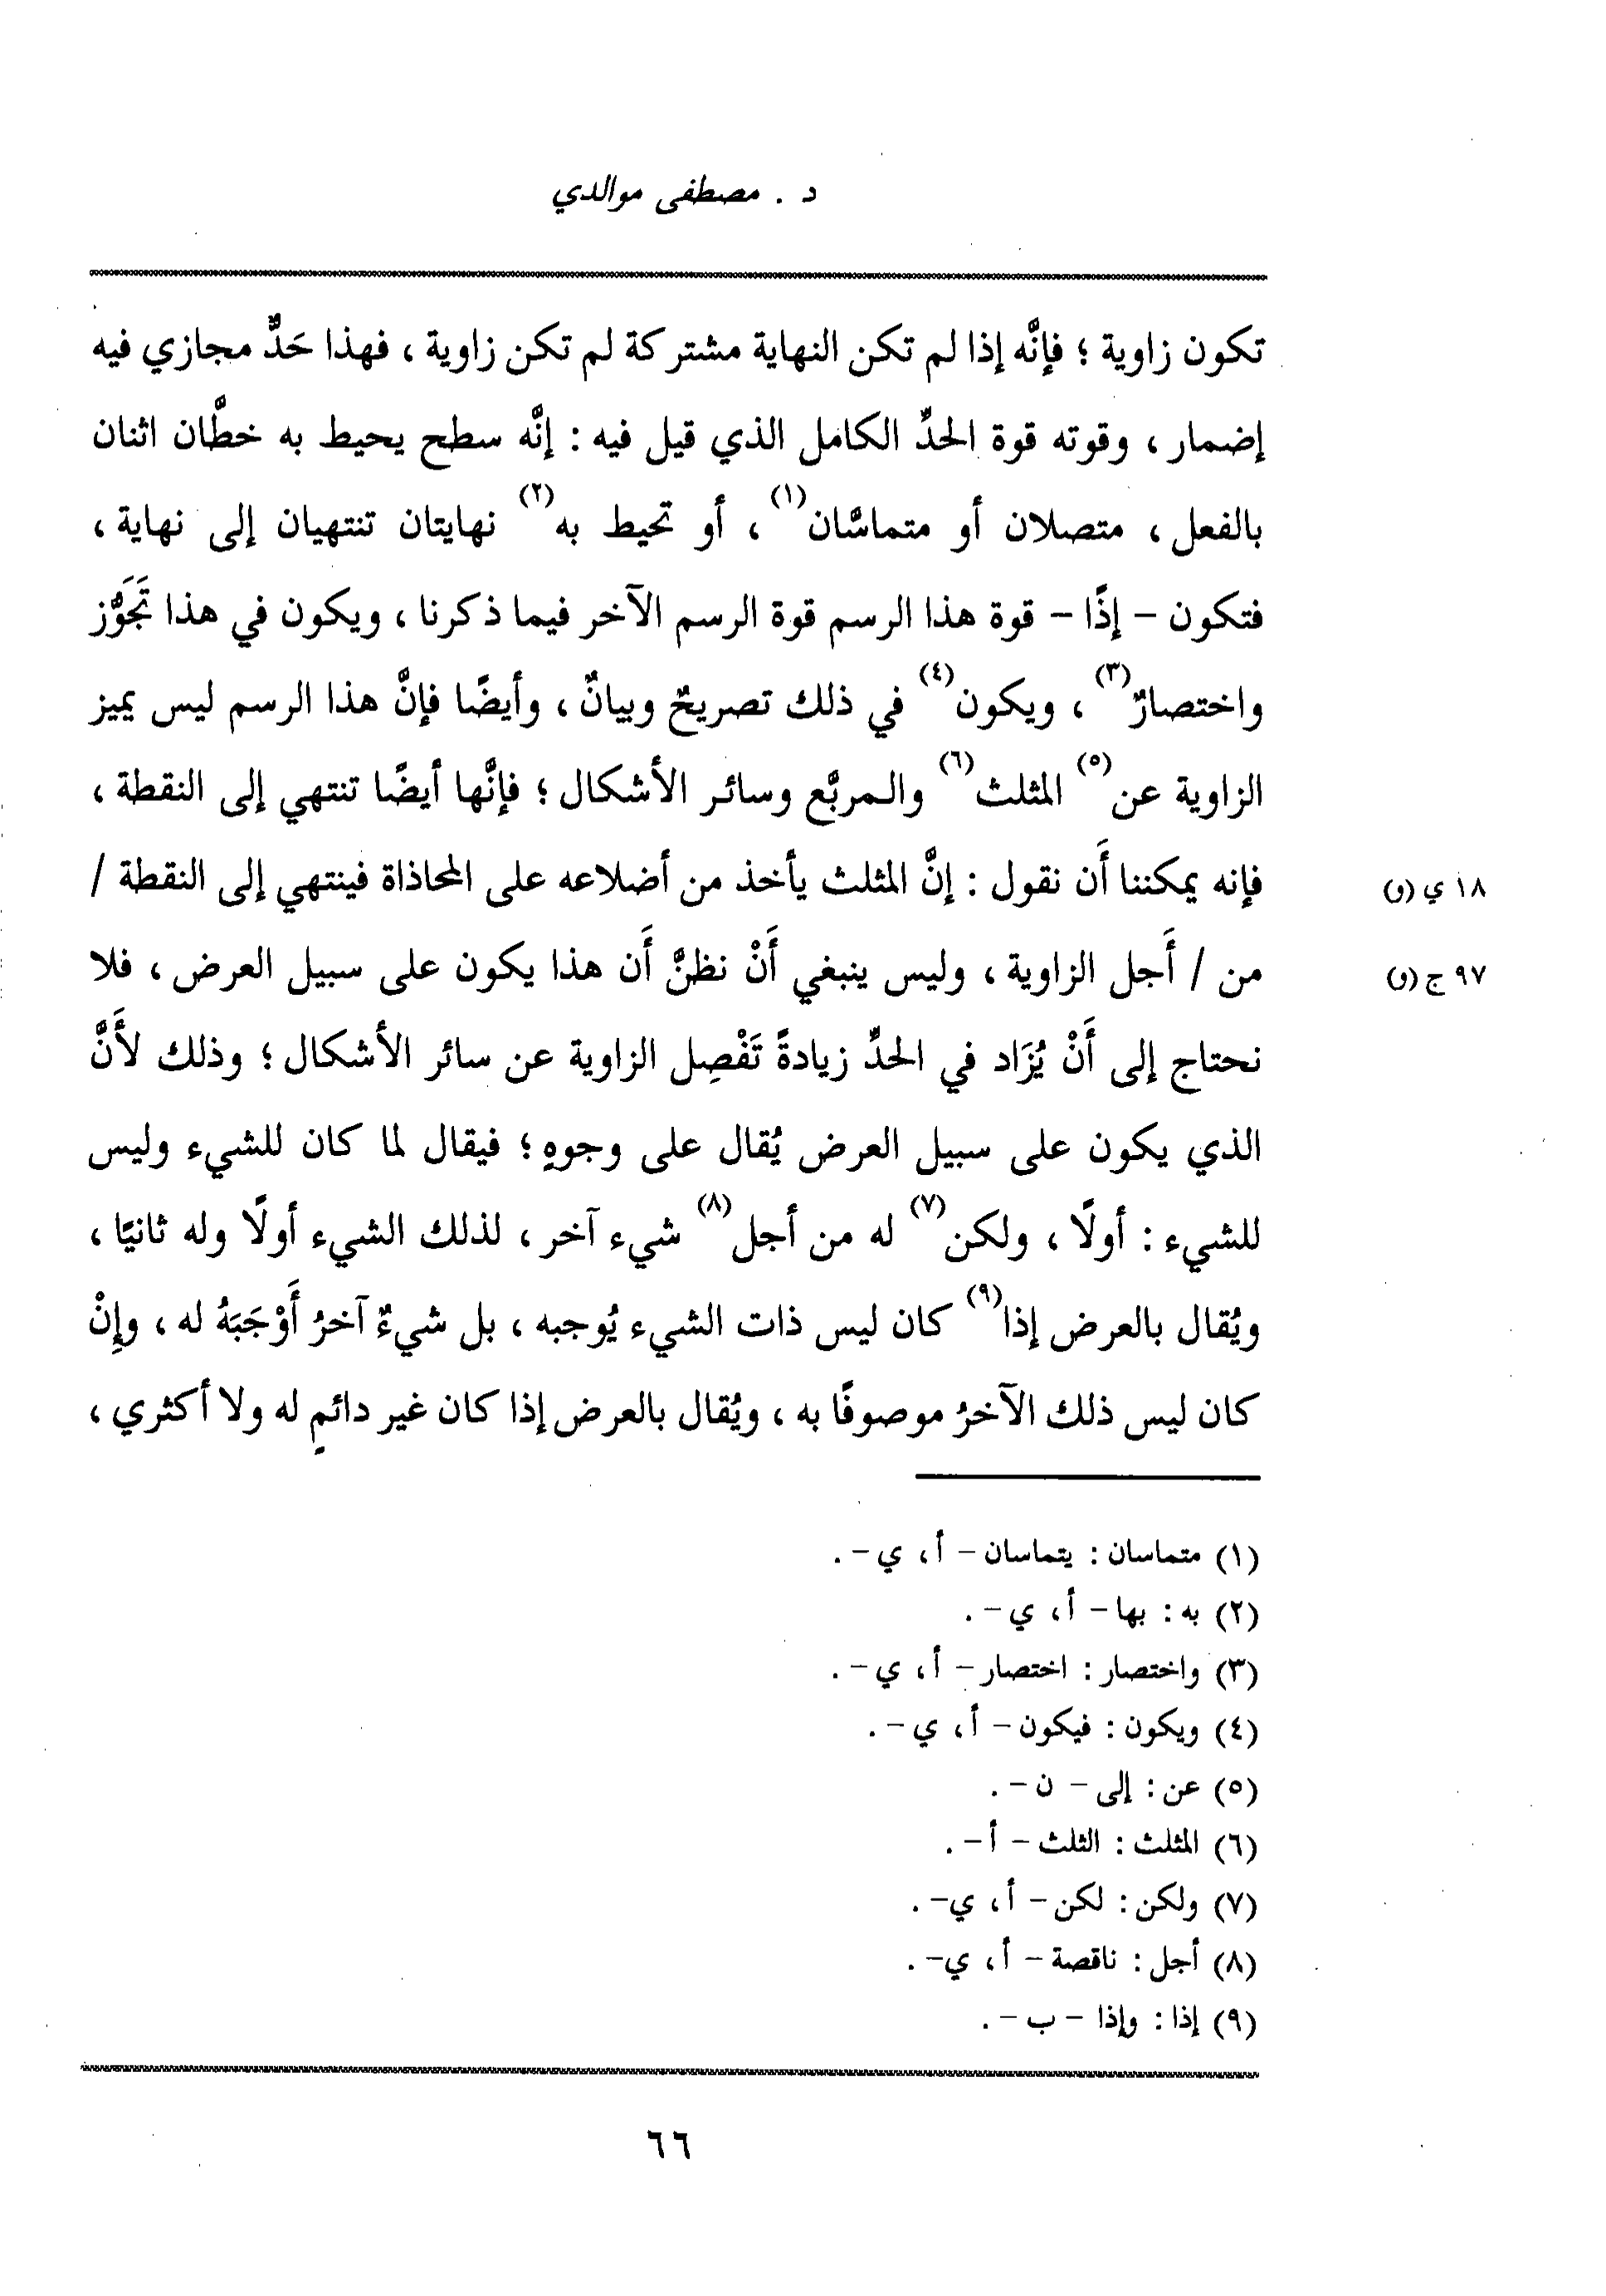 د . مصطفى موالدي
تكون زاوية ؛ فإنَّه إذا لم تكن النهاية مشتركة لم تكن زاوية ، فهذا حَدٌّ مجازي فيه
إضمار ، وقوته قوة الحدِّ الكامل الذي قيل فيه : إنَّه سطح يحيط به خطَّان اثنان
بالفعل ، متصلان أو متماسَّان(١) ، أو تحيط به(٢) نهايتان تنتهيان إلى نهاية ،
فتكون - إذًا - قوة هذا الرسم قوة الرسم الآخر فيما ذكرنا ، ويكون في هذا تَجَوُّز
واختصارٌ(٣) ، ويكون(٤) في ذلك تصريحٌ وبيانٌ ، وأيضًا فإنَّ هذا الرسم ليس يميز
الزاوية عن(٥) المثلث(٦) والمربَّع وسائر الأشكال ؛ فإنَّها أيضًا تنتهي إلى النقطة ،
فإنه يمكننا أَن نقول : إنَّ المثلث يأخذ من أضلاعه على المحاذاة فينتهي إلى النقطة / ١٨ ي (و)
من / أَجل الزاوية ، وليس ينبغي أَنْ نظنَّ أَن هذا يكون على سبيل العرض ، فلا ٩٧ ج (و)
نحتاج إلى أَنْ يُزَاد في الحدِّ زيادةً تَفْصِل الزاوية عن سائر الأشكال ؛ وذلك لأَنَّ
الذي يكون على سبيل العرض يُقال على وجوهٍ ؛ فيقال لما كان للشيء وليس
للشيء : أولًا ، ولكن(٧) له من أجل(٨) شيء آخر ، لذلك الشيء أولًا وله ثانيًا ،
ويُقال بالعرض إذا(٩) كان ليس ذات الشيء يُوجبه ، بل شيءٌ آخرُ أَوْجَبَهُ له ، وإِنْ
كان ليس ذلك الآخرُ موصوفًا به ، ويُقال بالعرض إذا كان غير دائمٍ له ولا أكثري ،
(١) متماسان : يتماسان - أ ، ي - .
(٢) به : بها - أ ، ي - .
(٣) واختصار : اختصار - أ ، ي - .
(٤) ويكون : فيكون - أ ، ي - .
(٥) عن : إلى - ن - .
(٦) المثلث : الثلث - أ - .
(٧) ولكن : لكن - أ ، ي - .
(٨) أجل : ناقصة - أ ، ي - .
(٩) إذا : وإذا - ب - .
٦٦